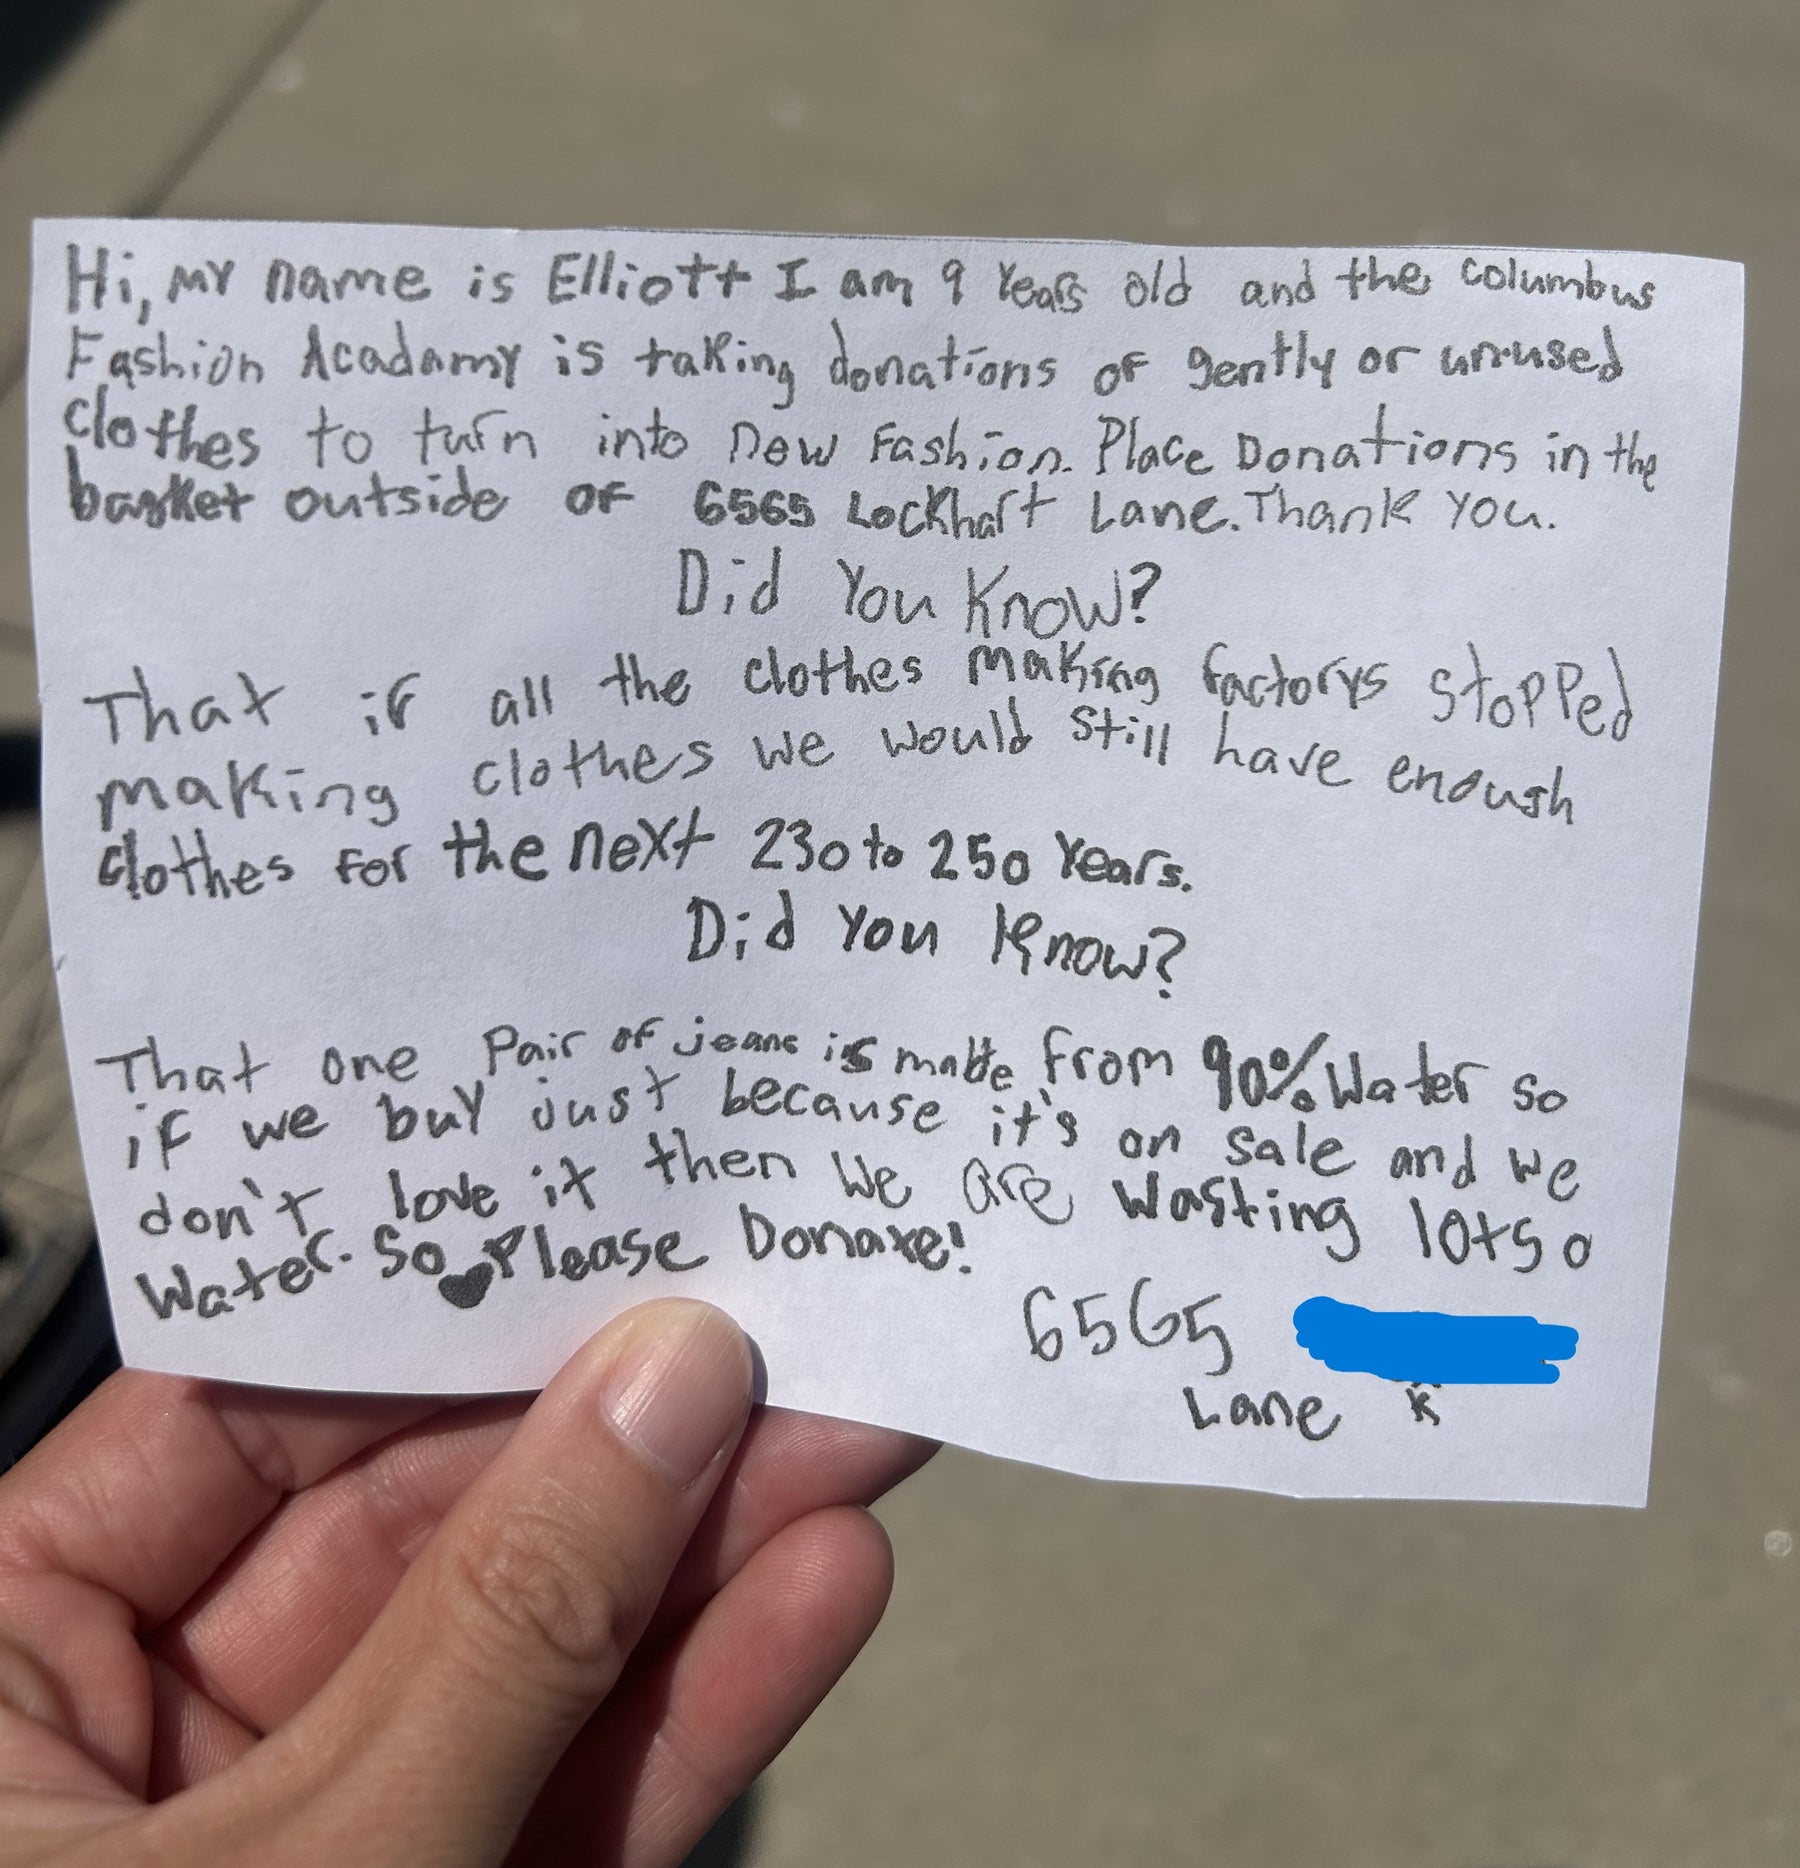 Hi, my name is Elliott I am 9 years old and the columbus
Fashion Acadamy is taking donations of gently or unused
clothes to turn into new Fashion. Place Donations in the
basket outside of 6565 Lockhart Lane. Thank you.
Did You Know?
That if all the clothes making factorys stopped
making clothes we would still have enough
clothes for the next 230 to 250 years.
Did you Know?
That one pair of jeans is made from 90% Water so
if we buy just because it's on sale and we
don't love it then we are wasting lots o
Water. So please Donate!
6565
Lane